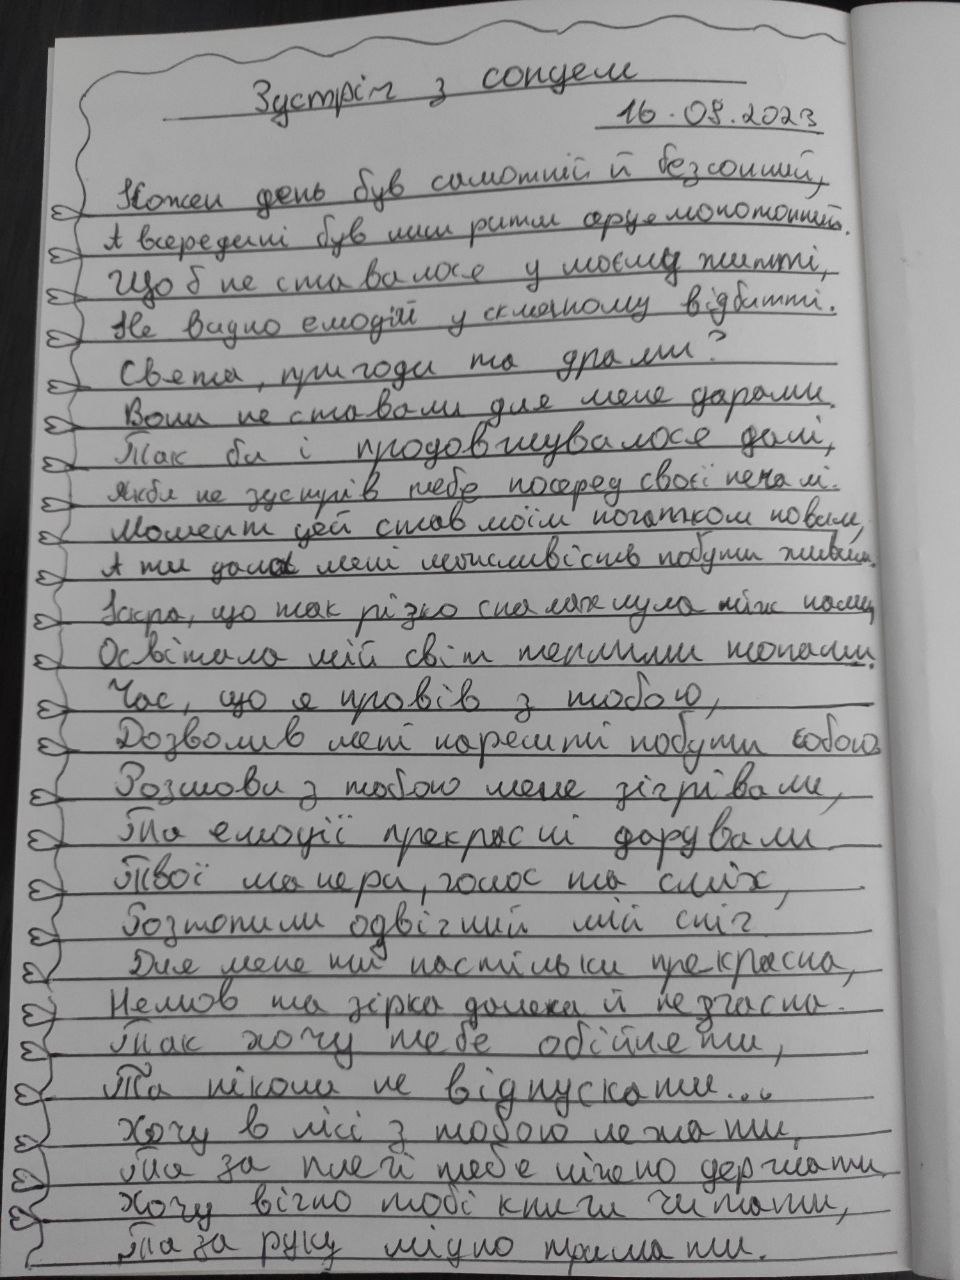 Зустріч з сонцем
16.08.2023
Кожен день був самотній й безсонний,
А всередині був лиш ритм серця монотонний.
Що б не ставалося у моєму житті,
Не видно емоцій у скляному відбитті.
Свята, пригоди та драми?
Вони не ставали для мене дарами.
Так би і продовжувалося далі,
Якби не зустрів тебе посеред своєї печалі.
Момент цей став моїм початком новим,
А ти дала мені можливість побути живим.
Іскра, що так різко спалахнула між нами,
Освітила мій світ теплими тонами.
Час, що я провів з тобою,
Дозволив мені нарешті побути собою.
Розмови з тобою мене зігрівали,
Та емоції прекрасні дарували
Твої манери, голос та сміх,
Розтопили одвічний мій сніг
Для мене ти настільки прекрасна,
Немов та зірка далека й незгасна.
Так хочу тебе обійняти,
Та ніколи не відпускати...
Хочу в лісі з тобою лежати,
Та за плечі тебе ніжно держати
Хочу вічно тобі книги читати,
Та за руку міцно тримати.